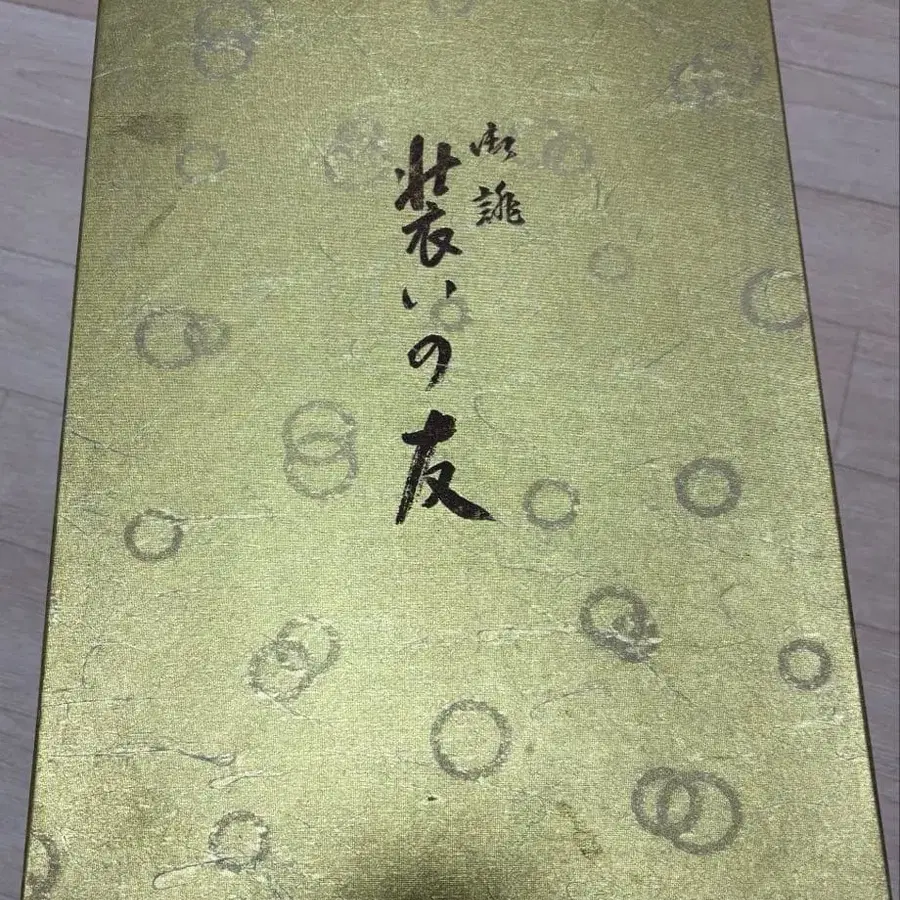 御誂
装いの友